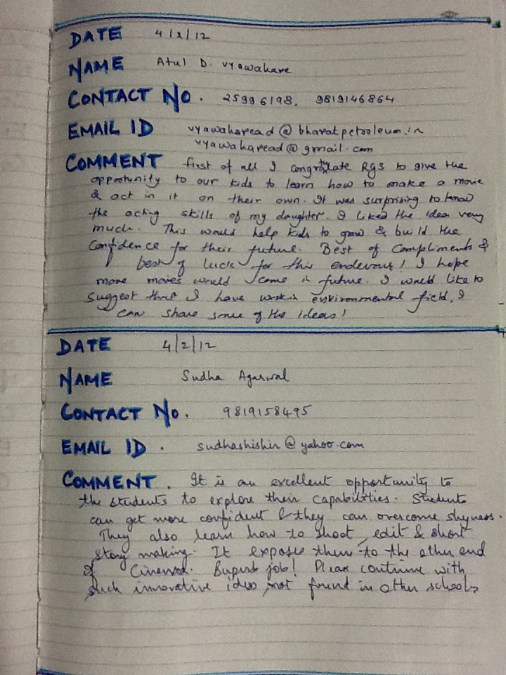 DATE 4/2/12
NAME Atul D. vyawahare
CONTACT NO. 25996198, 9819146864
EMAIL ID vyawaharead@bharatpetroleum.in
vyawaharead@gmail.com
COMMENT first of all I congratulate RGS to give the
opprotunity to our kids to learn how to make a movie
& act in it on their own. It was surprising to know
the acting skills of my daughter. I liked the idea very
much. This would help kids to grow & build the
Confidence for their future. Best of Compliments &
best of luck for this endevous! I hope
more movies would come in future. I would like to
suggest that I have work in environmental field, I
can share some of the ideas!
DATE 4/2/12
NAME Sudha Agarwal
CONTACT NO. 9819158495
EMAIL ID. sudhashishir@yahoo.com
COMMENT. It is an excellent opportunity to
the students to explore their capabilities. Students
can get more confident & they can overcome shyness.
They also learn how to shoot, edit & short
story making. It exposes them to the other end
of Cinema. Superb job! Please continue with
such innovative idea not found in other schools